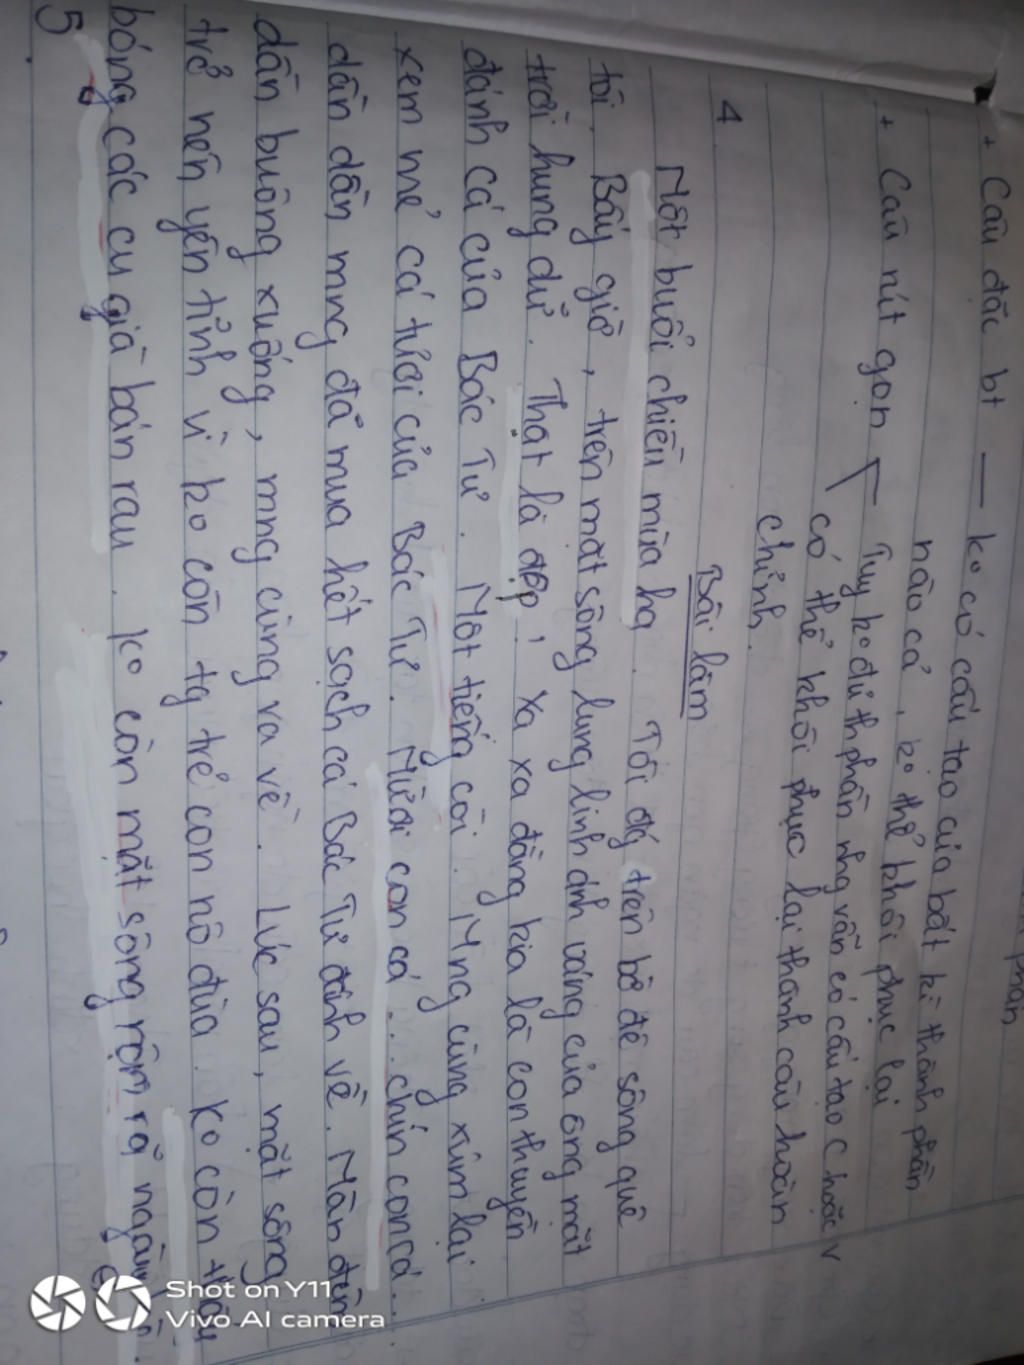 phần
+ Câu đặc bt — ko có cấu tạo của bất kì thành phần
nào cả, ko thể khôi phục lại
+ Câu rút gọn Tuy ko đủ th phần nhg vẫn có cấu tạo C hoặc V
có thể khôi phục lại thành câu hoàn
chỉnh.
4 Bài làm
Một buổi chiều mùa hạ. Tôi đứg trên bờ đê sông quê
tôi. Bấy giờ, trên mặt sông lung linh ánh vàng của ông mặt
trời hung dữ. Thật là đẹp! Xa xa đằng kia là con thuyền
đánh cá của Bác Tư. Một tiếng còi. Mng cùng xúm lại
xem mẻ cá tươi của Bác Tư. Mười con cá... chín con cá...
dần dần mng đã mua hết sạch cá Bác Tư đánh về. Màn đêm
dần buông xuống, mng cùng ra về. Lúc sau, mặt sông
trở nên yên tĩnh vì ko còn tg trẻ con nô đùa. Ko còn thấy
bóng các cụ già bán rau. Ko còn mặt sông rộm rã
5
Shot on Y11
Vivo AI camera